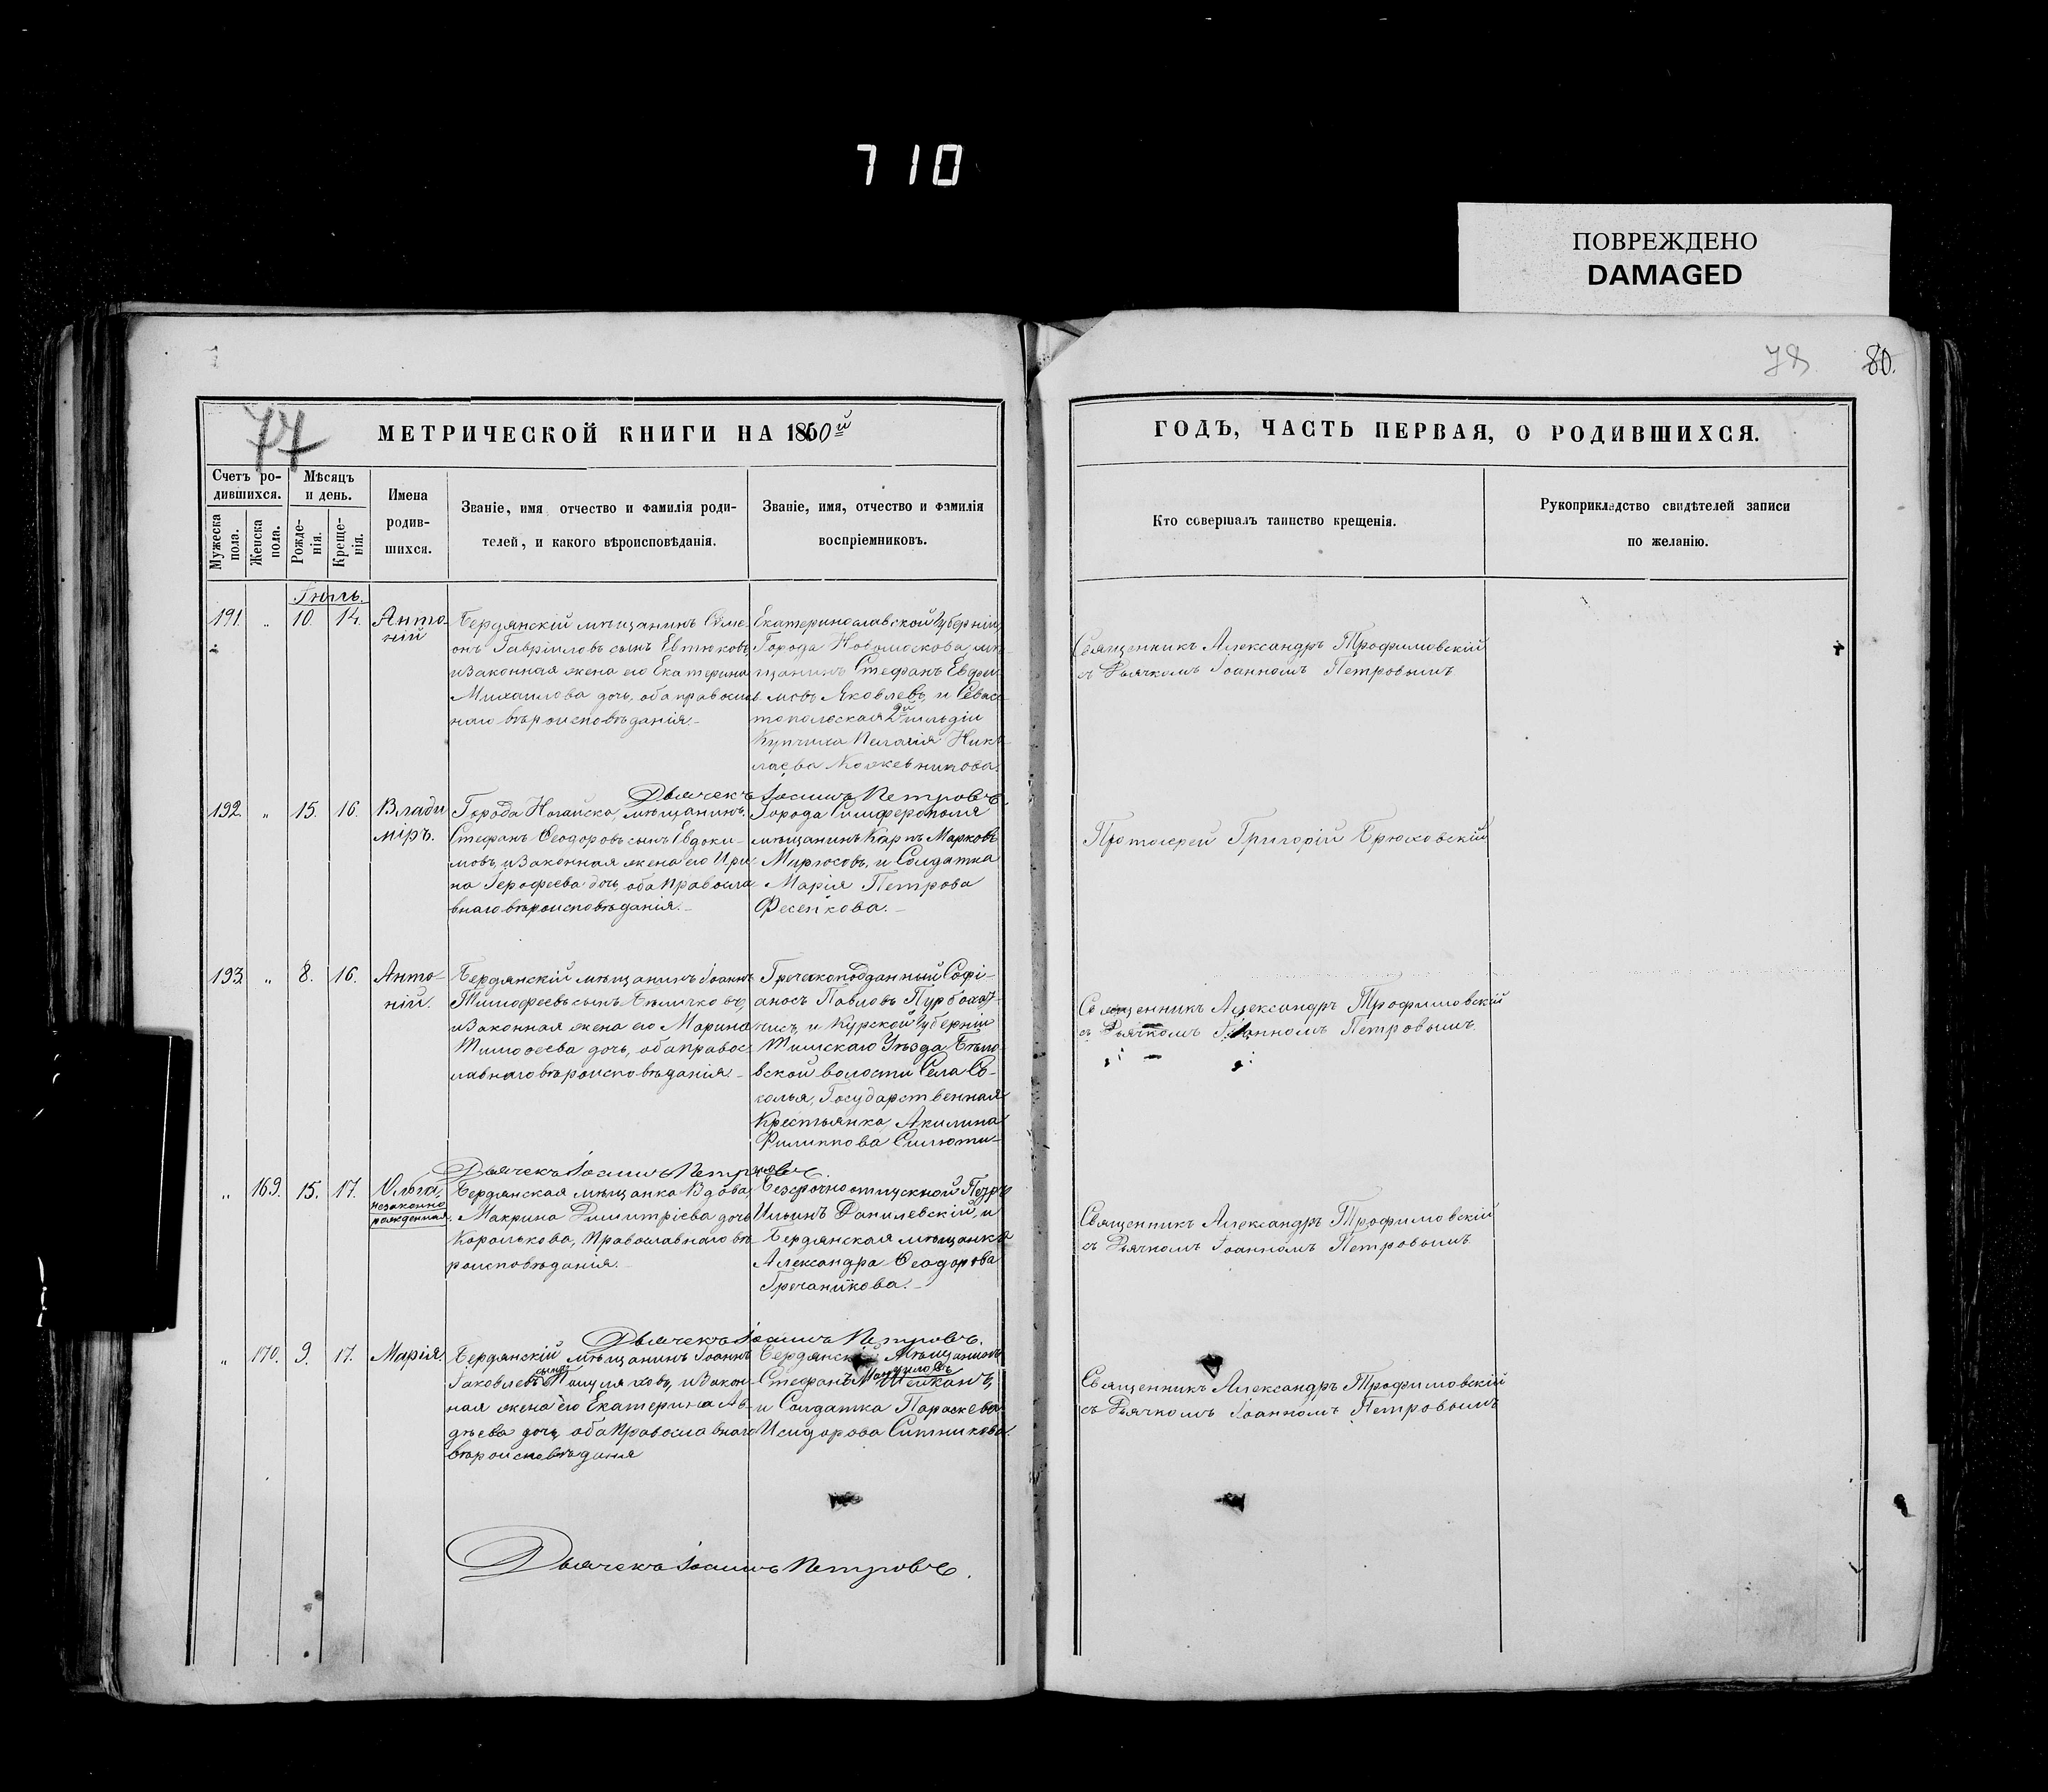 710
ПОВРЕЖДЕНО
DAMAGED
78. 80.
77
МЕТРИЧЕСКОЙ КНИГИ НА 1860й
ГОДЪ, ЧАСТЬ ПЕРВАЯ, О РОДИВШИХСЯ.
Счетъ ро-
дившихся.
Мужеска
пола.
Женска
пола.
Мѣсяцъ
и день.
Рожде-
нія.
Креще-
нія.
Имена
родив-
шихся.
Званіе, имя отчество и фамилія роди-
телей, и какого вѣроисповѣданія.
Званіе, имя, отчество и фамилія
воспріемниковъ.
Кто совершалъ таинство крещенія.
Рукоприкладство свидѣтелей записи
по желанію.
Іюль.
191. „ 10. 14. Анто-
ній
Бердянскій мѣщанинъ Симе-
онъ Гавріиловъ сынъ Евтюховъ
и законная жена его Екатерина
Михаилова дочь, оба правосла-
внаго вѣроисповѣданія.
Екатеринославской Губерніи,
Города Новомоскова, мѣ-
щанинъ Стефанъ Евфи-
мовъ Яковлевъ, и Севас-
топольская 2й гильдіи
Купчиха Пелагія Нико-
лаева Кожевникова.
Священникъ Александръ Трофимовскій
съ Дьячкомъ Іоанномъ Петровымъ
Дьячекъ Іоаннъ Петровъ.
192. „ 15. 16. Влади
міръ.
Города Ногайска, мѣщанинъ
Стефанъ Ѳеодоровъ сынъ Евдоки-
мовъ, и законная жена его Ири-
на Герофеева дочь, оба правосла
внаго вѣроисповѣданія.
Города Симферополя
мѣщанинъ Карпъ Марковъ
и Солдатка
Марія Петрова
Фесенкова.
Протоіерей Григорій Брюховскій
193. „ 8. 16. Анто-
ній.
Бердянскій мѣщанинъ Іоаннъ
Тимофеевъ сынъ
и законная жена его Марина
Тимофеева дочь, оба правос-
лавнаго вѣроисповѣданія.
Греческоподданный Софі-
аносъ Павловъ
и Курской Губерніи
Тимскаго Уѣзда
вской волости Села Со-
колья, Государственная
Крестьянка, Акилина
Филиппова
Священникъ Александръ Трофимовскій
съ Дьячкомъ Іоанномъ Петровымъ.
Дьячекъ Іоаннъ Петровъ.
„ 169. 15. 17. Ольга,
незаконно
рожденная.
Бердянская мѣщанка Вдова
Макрина Димитріева дочь
Королькова, Православнаго вѣ-
роисповѣданія.
Безсрочноотпускной Петръ
Ильинъ Данилевскій, и
Бердянская мѣщанка
Александра Ѳеодорова
Гречаникова.
Священникъ Александръ Трофимовскій
съ Дьячкомъ Іоанномъ Петровымъ
Дьячекъ Іоаннъ Петровъ.
„ 170. 9. 17. Марія.
Бердянскій мѣщанинъ Іоаннъ
Іаковлевъ сынъ и закон-
ная жена его Екатерина Ав-
дѣева дочь, оба православнаго
вѣроисповѣданія
Бердянскій Мѣщанинъ
Стефанъ
и Солдатка Параскева
Исидорова Ситникова.
Священникъ Александръ Трофимовскій
съ Дьячкомъ Іоанномъ Петровымъ
Дьячекъ Іоаннъ Петровъ.